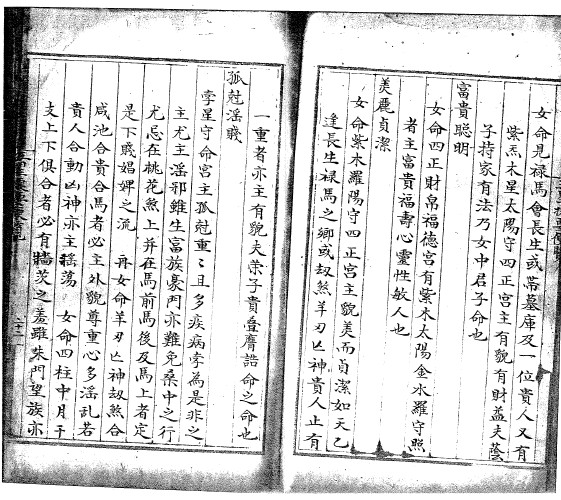 女命見禄馬會長生或帯墓庫及一位貴人又有
紫炁木星太陽守四正宮主有貌有財益夫蔭
子持家有法乃女中君子命也
富貴聰明
女命四正財帛福德宮有紫木太陽金水羅守照
者主富貴福壽心靈性敏人也
美麗貞潔
女命紫木羅陽守四正宮主貌美而貞潔如天乙
逢長生禄馬之鄉或刼煞羊刃亡神貴人止有
一重者亦主有貌夫荣子貴叠膺誥命之命也
孤尅滛賤
孛星守命宮主孤尅重〻且多疾病孛為是非之
主尤主滛邪雖生富族豪門亦難免桑中之行
尤忌在桃花煞上并在馬前馬後及馬上者定
是下賤娼婢之流 又女命羊刃亡神刼煞合
咸池合貴合馬者必主外貌尊重心多滛乱若
貴人合動凶神亦主揺蕩 女命四柱中月干
支上下俱合者必有牆茨之羞雖朱門望族亦